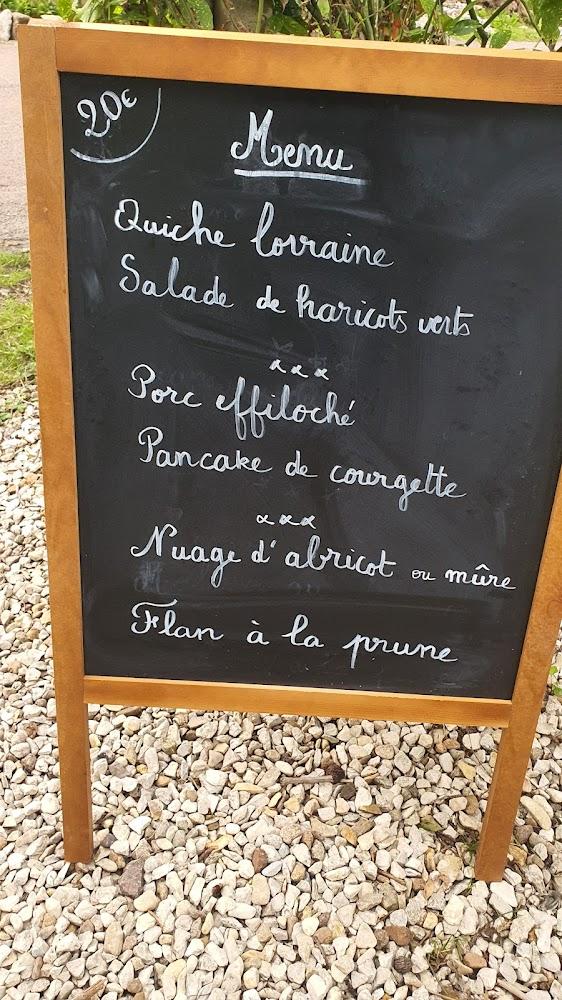 20€
Menu
Quiche lorraine
Salade de haricots verts
x x x
Porc effiloché
Pancake de courgette
x x x
Nuage d'abricot ou mûre
Flan à la prune